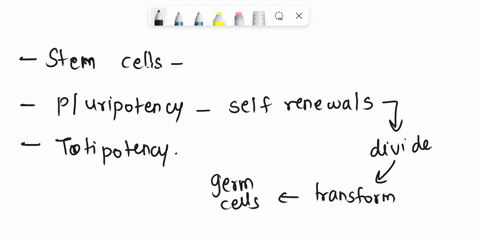 - Stem cells -
- Pluripotency - self renewals
divide
- Totipotency.
transform
germ
cells